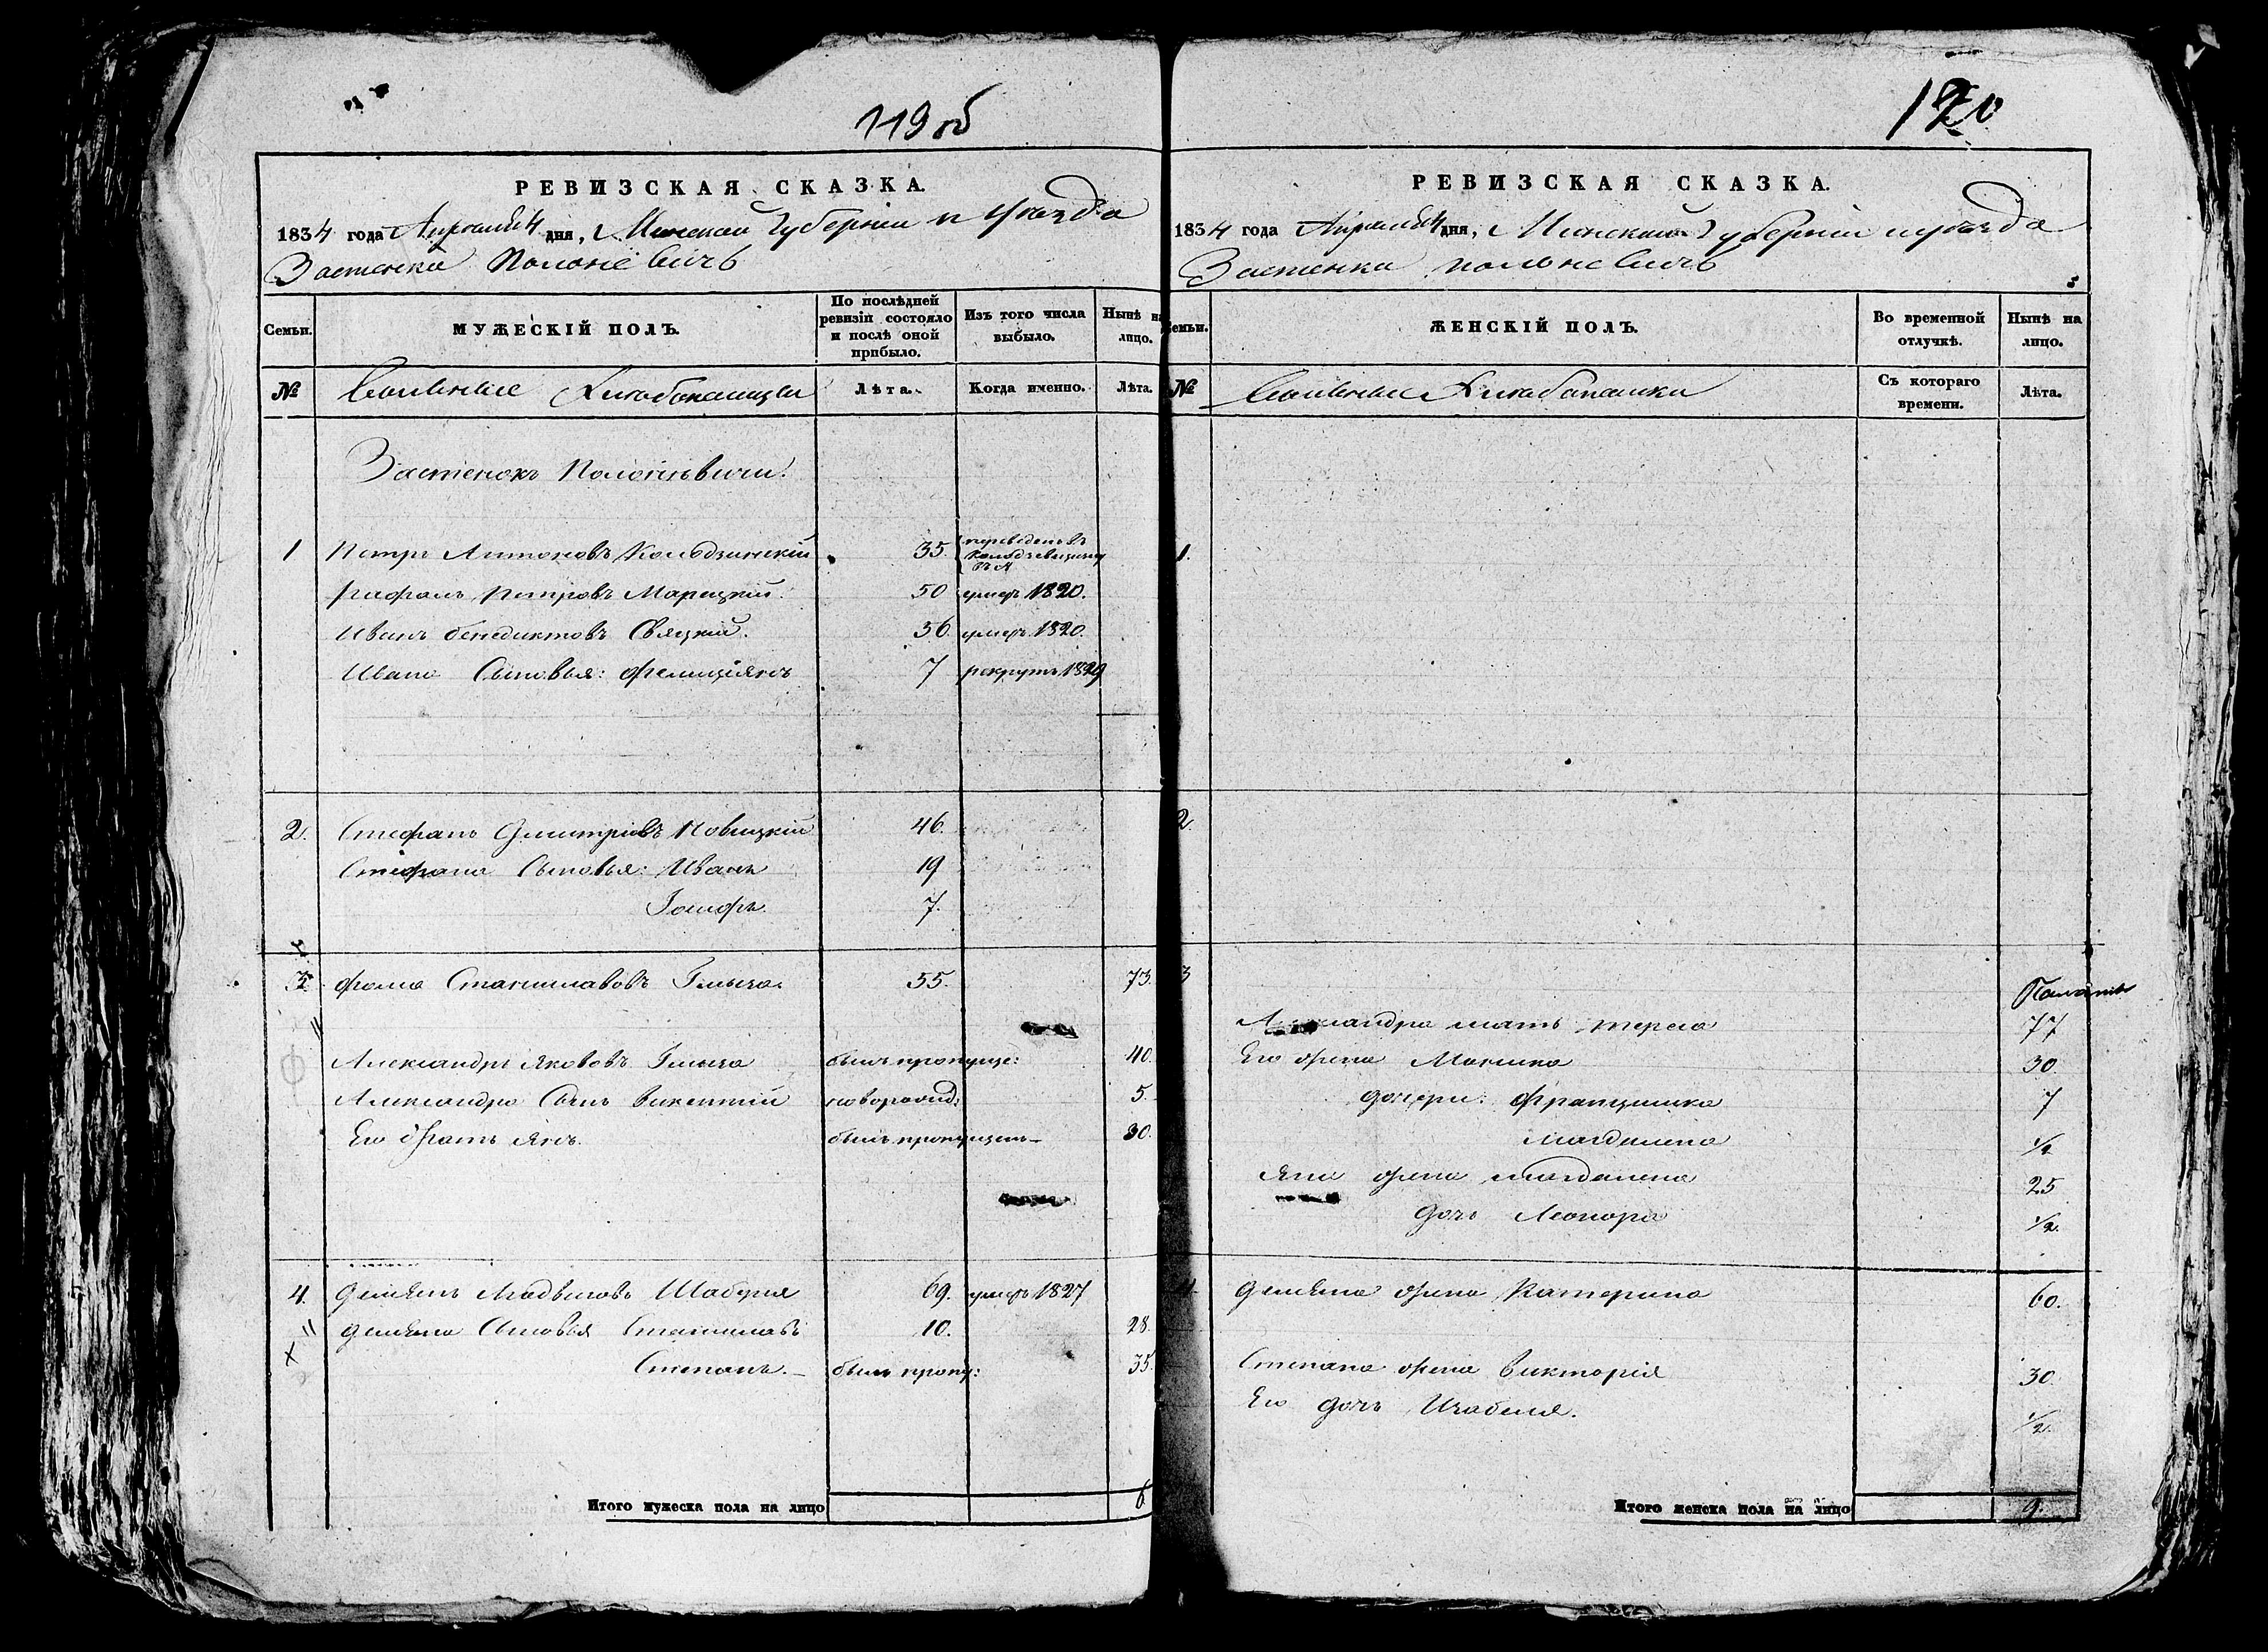 119 об
РЕВИЗСКАЯ СКАЗКА.
1834 года Апреля 4 дня, Минской Губернии и уезда
Застенка Полоневичъ
Семьи.
МУЖЕСКІЙ ПОЛЪ.
По послѣдней ревизіи состояло и послѣ оной прибыло.
Изъ того числа выбыло.
Нынѣ на лицо.
№
Лѣта.
Когда именно.
Лѣта.
Застенокъ Полоневичи.
1 Петръ Антоновъ 35. переведенъ въ
Рафалъ Петровъ Марецкій. 50 умеръ 1820.
Иванъ Бенедиктовъ Свяцкій. 36. умеръ 1820.
Ивана Сыновья: Фелиціянъ 7 рекрутъ 1829
2. Стефанъ Дмитріевъ Новицкій 46.
Стефана Сыновья: Иванъ 19
Іосифъ. 7.
3. Фома Станиславовъ 55. 73.
Александръ Якововъ былъ пропуще: 40.
Александра Сынъ Викентій новорожд: 5.
Его братъ Янъ. былъ пропущенъ 30.
4. Демьянъ Шабуня 69. умеръ 1827
Демьяна Сыновья Станиславъ 10. 28.
Степанъ. былъ пропу: 35.
Итого мужеска пола на лицо 6
120
РЕВИЗСКАЯ СКАЗКА.
1834 года Апреля 4 дня, Минской Губерніи и уезда
Застенка Полоневичъ
Семьи.
ЖЕНСКІЙ ПОЛЪ.
Во временной отлучкѣ.
Нынѣ на лицо.
№
Съ котораго времени.
Лѣта.
1.
2.
3
Александра мать Тереса 77
Его жена Марина 30.
Дочери: Францишка 7
Магдалена 1/2
Яна жена Магдалена 25
Дочь Леонора 1/2.
4. Демьяна жена Катерина 60.
Степана жена Викторія 30.
Его дочь Изабеля. 1/2.
Итого женска пола на лицо 9.